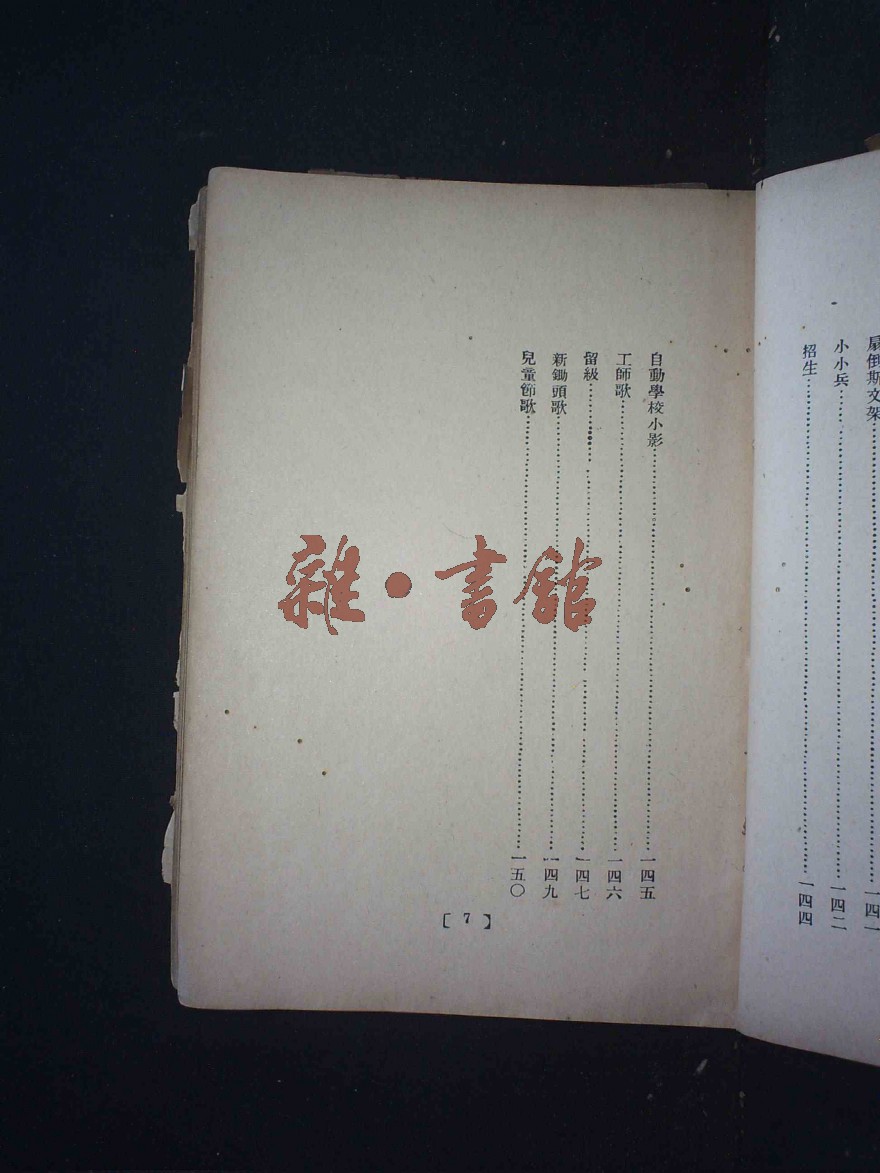 俄斯文架……一四一
小小兵……一四二
招生……一四四
自動學校小影……一四五
工師歌……一四六
留級……一四七
新鋤頭歌……一四九
兒童節歌……一五〇
〔7〕
雜·書館